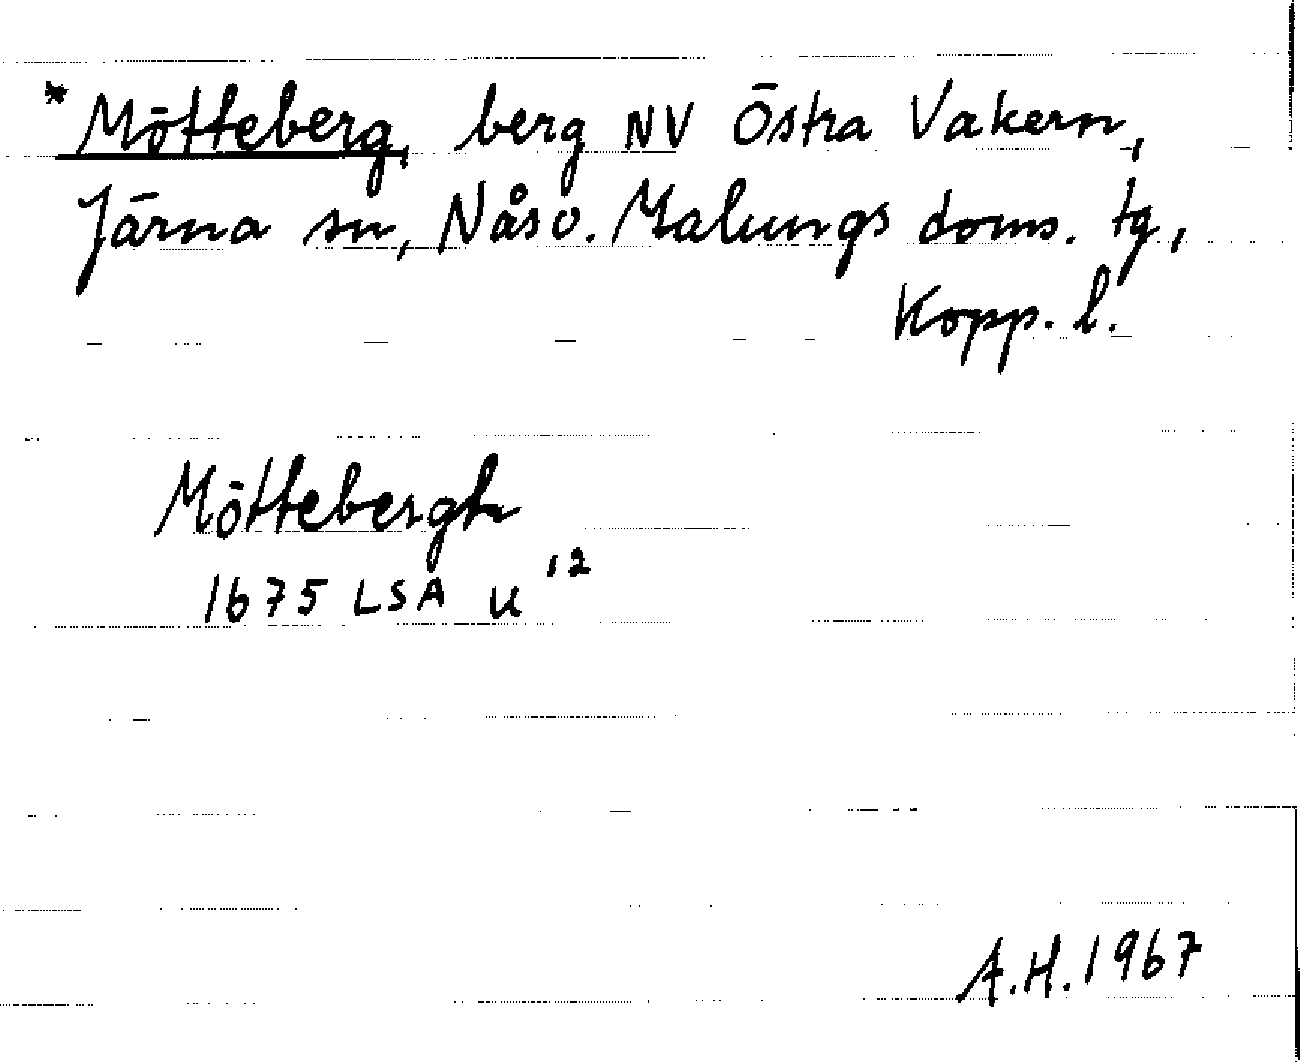 * Mötteberg, berg NV Östra Vakern,
Järna sn, Nås o. Malungs doms. tg,
Kopp. l.
Möttebergh
1675 LSA U 12
A.H. 1967